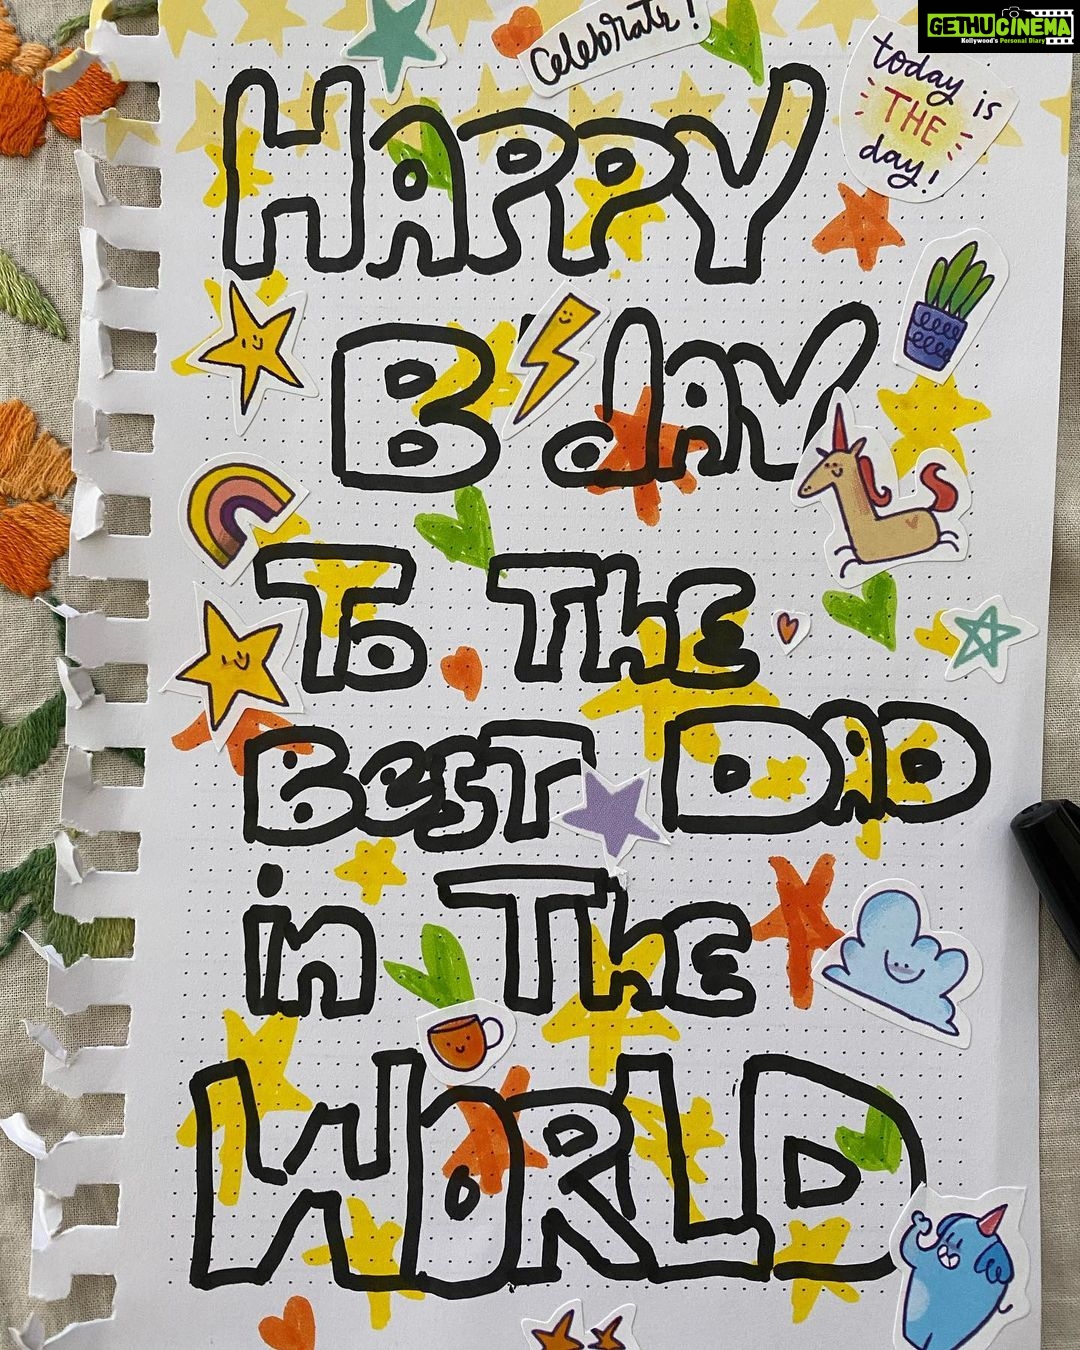 GETHUCINEMA
Kollywood's Personal Diary
Celebrate!
today is
THE
day!
HAPPY
B'dAY
To The
BesT DAD
in The
WORLD